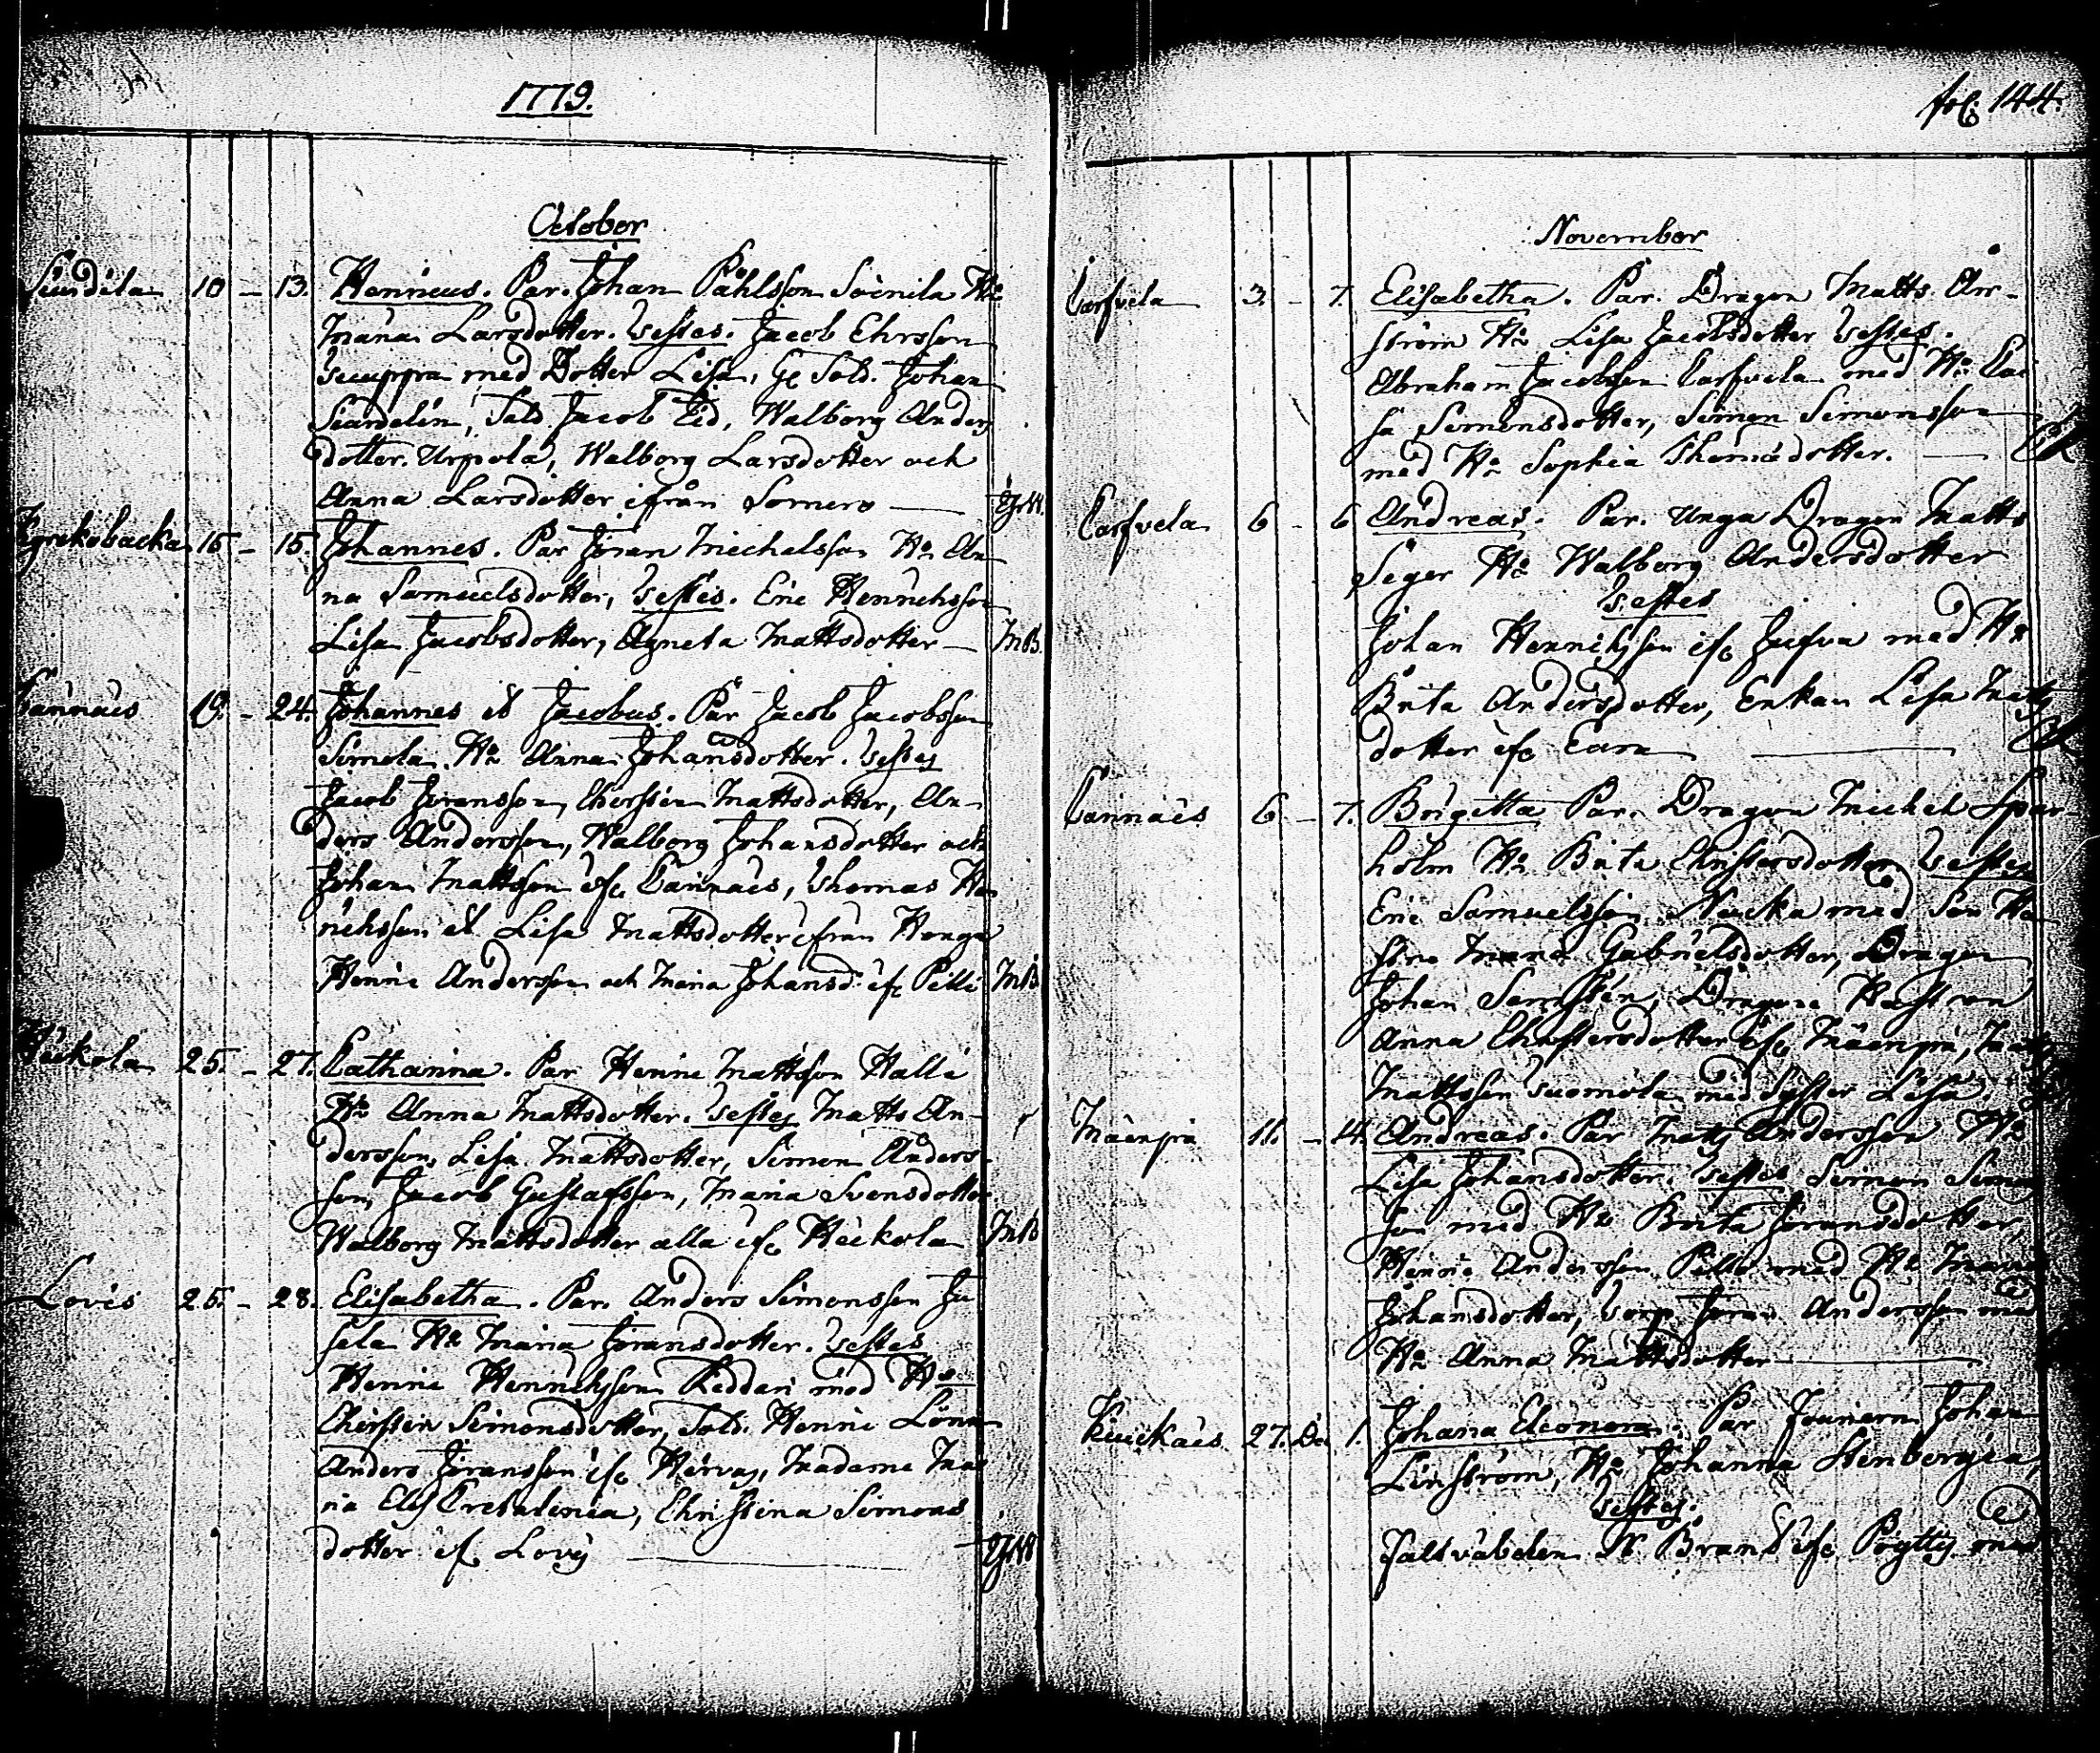 1779.
October
10 – 13. Henricus. Par. Johan Påhlsson Soinila H:u
Maria Larsdotter. Testes. Jacob Ehrsson
med Dotter Lisa, Sold. Johan
Sold Jacob Eid, Walborg Anders
dotter. Urpola, Walborg Larsdotter och
Anna Larsdotter ifrån Somero
Kyrckobacka 15 – 15. Johannes. Par Jöran Michelsson H:u An
na Samuelsdotter, Testes. Eric Henrichsson
Lisa Jacobsdotter, Agneta Mattsdotter – MB.
19. – 24. Johannes et Jacobus. Par Jacob Jacobsson
Simola H:u Anna Johansdotter. Testes
Jacob Jöransson, Cherstin Mattsdotter, An-
ders Andersson, Walborg Johansdotter och
Johan Mattsson if: Cannäis, Thomas He
richsson et Lisa Mattsdotter ifrån
Henric Andersson och Maria Johansd: if: Pilli MB
25. – 27. Catharina. Par Henric Mattsson Halli
H:u Anna Mattsdotter. Testes Matts An-
dersson, Lisa Mattsdotter, Simon Anders-
son, Jacob Gustafsson, Maria Svensdotter
Walborg Mattsdotter alla if: MB
Lovis 25. – 28. Elisabetha. Par. Anders Simonsson Ju
sela H:u Maria Jöransdotter. Testes
Henric Henrichsson Keddari med H:u
Cherstin Simonsdotter, Sold. Henric Lönn
Anders Jöransson if: Hirvas, Madame Ma
ria Elis Christina Simons
dotter if. Lovis
fol. 144.
November
Carfvela 3. – 7. Elisabetha. Par. Dragon Matts Arr-
ström H:u Lisa Jacobsdotter Testes.
Abraham Jacobsson Carfvela med H:u Cai
sa Simonsdotter, Simon Simonsson
med H:u Sophia Thomædotter.
Carfvela 6 – 6 Andreas. Par. unga Dragon Matts
Seger H:u Walborg Andersdotter
Testes
Johan Henrichsson if: med H:u
Brita Andersdotter, Enkan Lisa Matts
dotter if:
Cannäis 6 – 7. Brigitta Par. Dragon Michel Spar-
holm H:u Brita Christersdotter Testes
Eric Samuelsson med sin Hu
stro Maria Gabrielsdotter, Dragon
Johan Dragons Hustron
Anna Christersdotter if: Mäenpä, Matts
Mattsson Suomola med Syster Lisa.
Mäenpä 11. – 14. Andreas. Par Matts Andersson H:u
Lisa Johansdotter. Testes Simon Simons
son med H:u Brita Jöransdotter,
Henric Andersson Pilli med H:u Maria
Johansdotter, Torp. Jöran Andersson med
H:u Anna Mattsdotter
27. Dec 1. Johana Eleonora. Par Johan
Linström, H:u Johanna Stenbergia,
Testes.
Fältväbelen N. Brand if: Pöyttis med